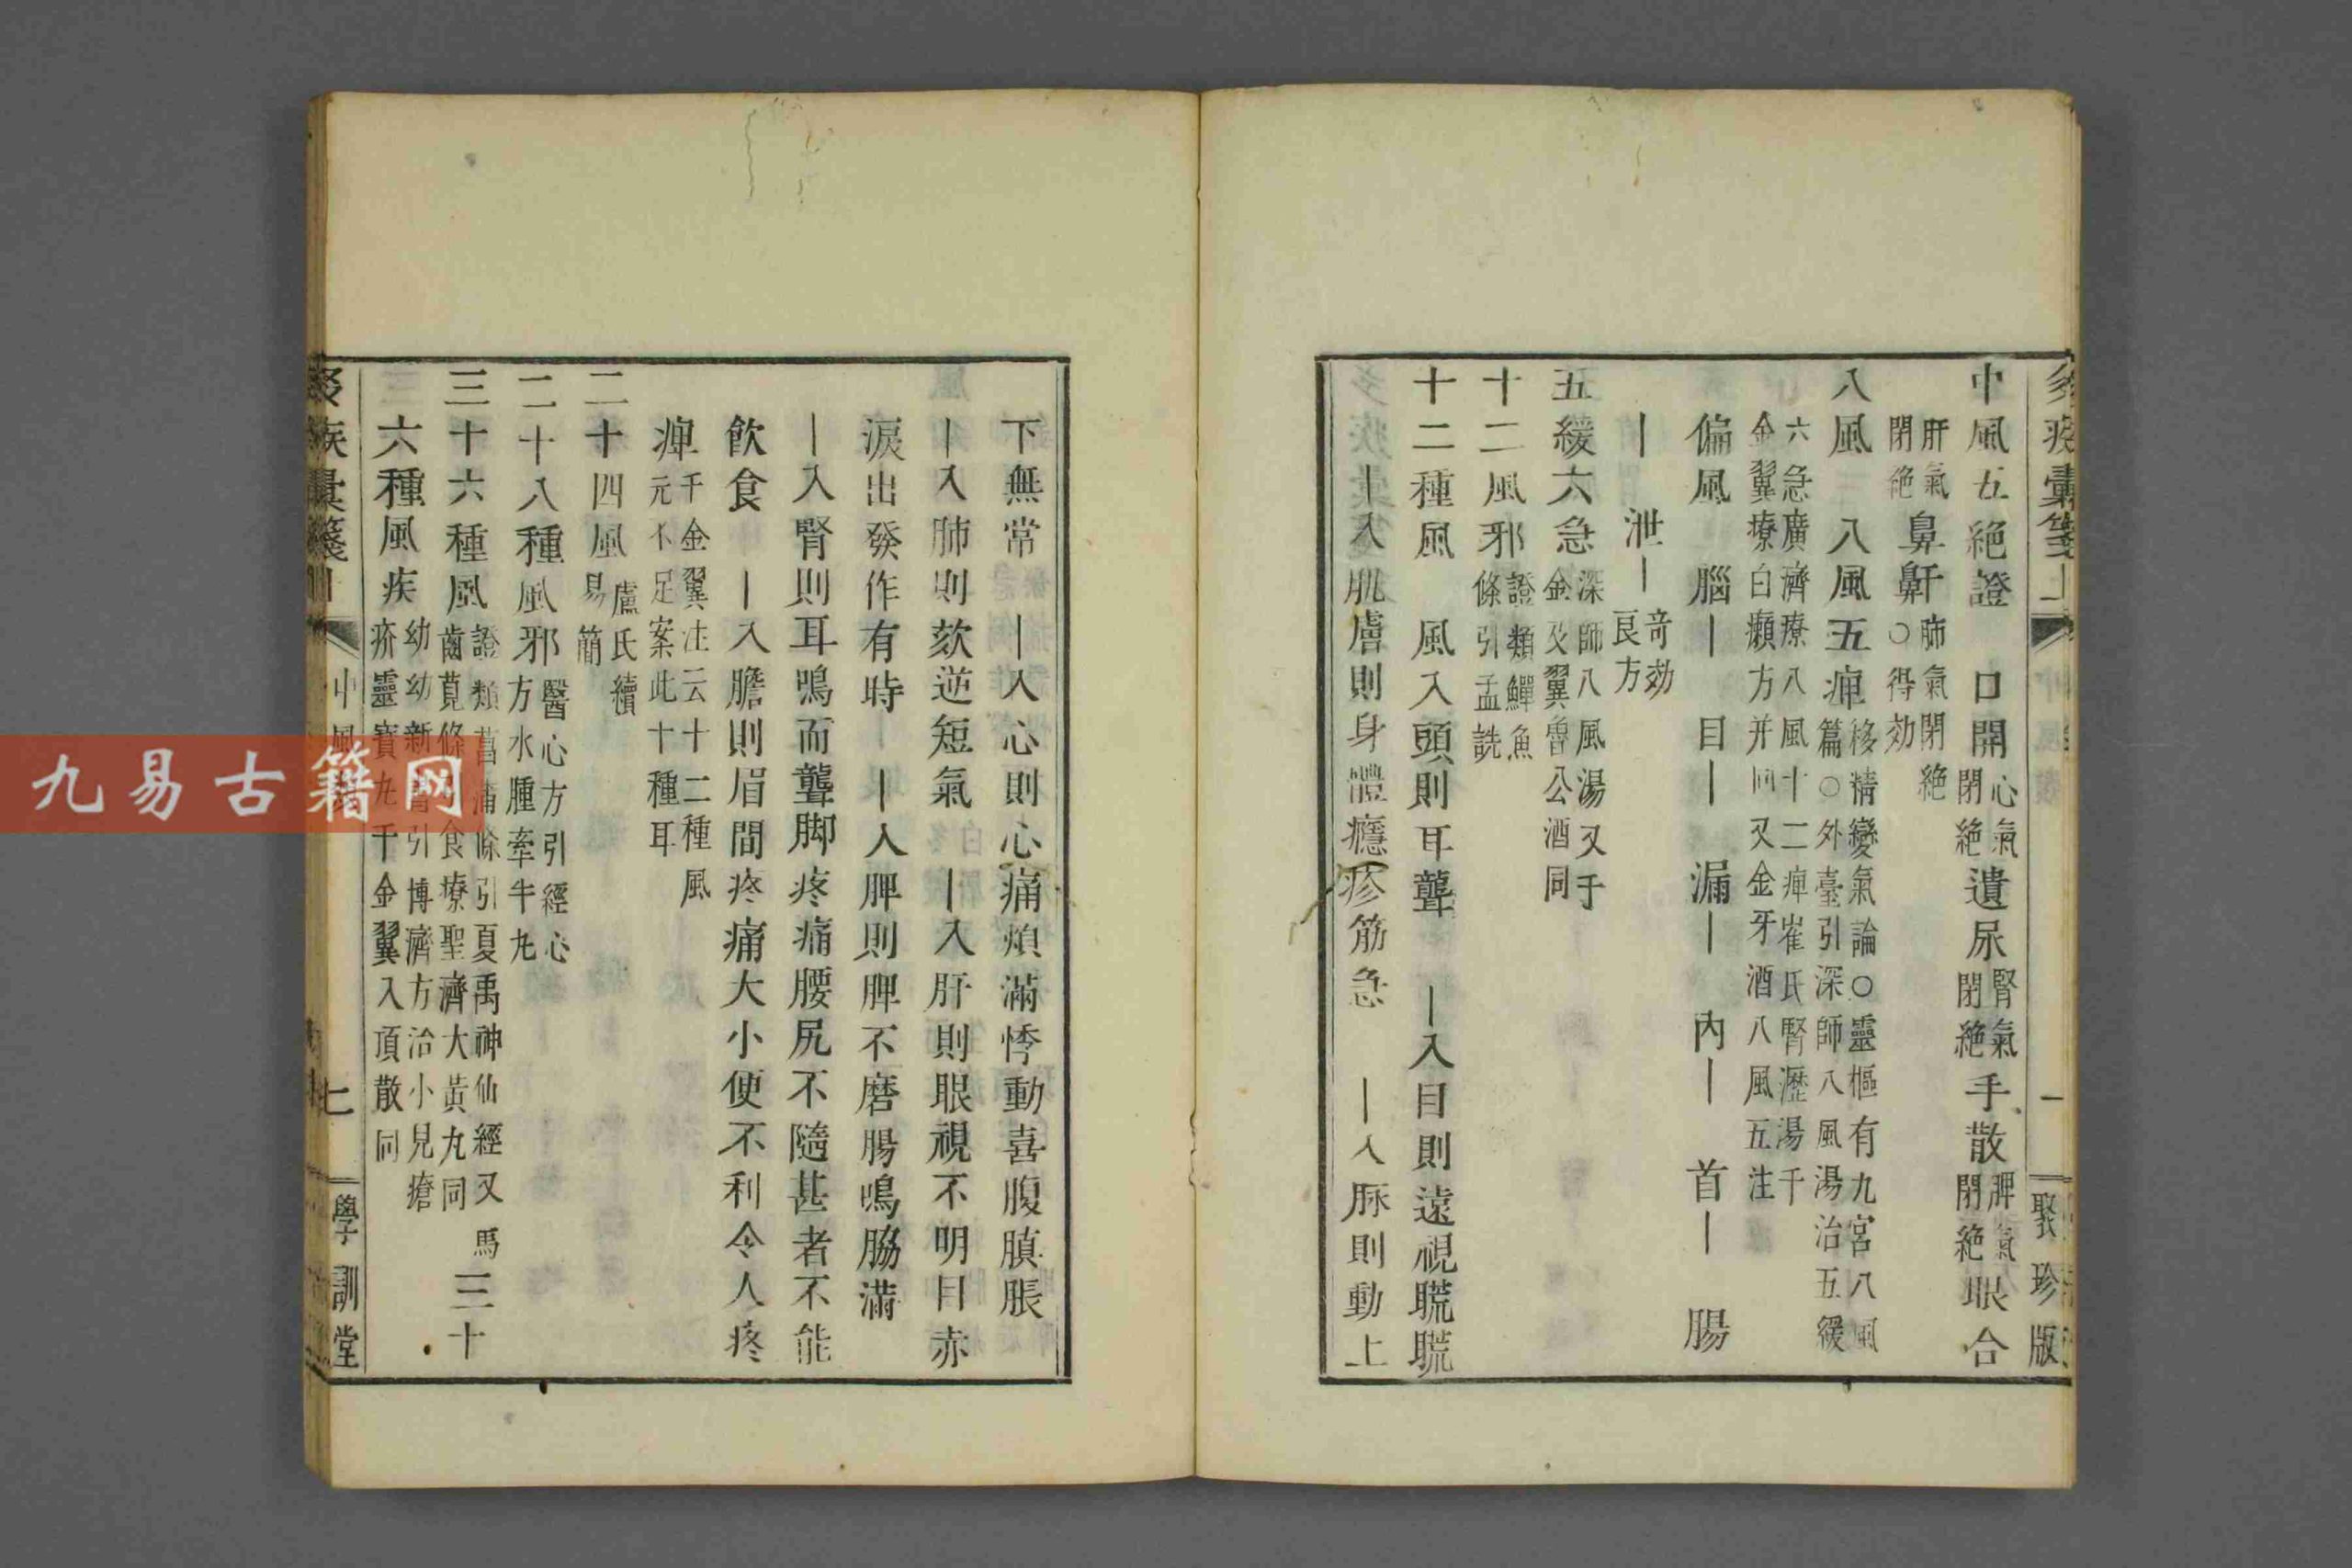 中風五絕證　口開心氣閉絕遺尿腎氣閉絕手散脾氣閉絕眼合
肝氣閉絕鼻鼾肺氣閉絕○得効
八風　八風五痺移精變氣論○靈樞有九宮八風篇○外臺引深師八風湯治五緩
六急廣濟療八風十二痺崔氏腎瀝湯千金翼療白癩方并同又金牙酒八風五注
偏風　腦｜　目｜　漏｜　內｜　首｜　腸
｜　泄｜奇効良方
五緩六急深師八風湯又千金及翼魯公酒同
十二風邪證類鱓魚條引孟詵
十二種風　風入頭則耳聾　｜入目則遠視䀮䀮
｜入肌膚則身體癮疹筋急　｜入脉則動上
下無常　｜入心則心痛煩滿悸動喜腹䐜脹
｜入肺則欬逆短氣　｜入肝則眼視不明目赤
淚出發作有時　｜入脾則脾不磨腸鳴脇滿
｜入腎則耳鳴而聾脚疼痛腰尻不隨甚者不能
飲食　｜入膽則眉間疼痛大小便不利令人疼
痺千金翼注云十二種風元不足案此十種耳
二十四風盧氏續易簡
二十八種風邪醫心方引經心方水腫牽牛九
三十六種風證類菖蒲條引夏禹神仙經又馬齒莧條引食療聖濟大黃九同三十
六種風疾幼幼新書引博濟方治小兒瘡疥靈寶九千金翼入頂散同
中風
七
學訓堂
一
聚珍版
九易古籍网